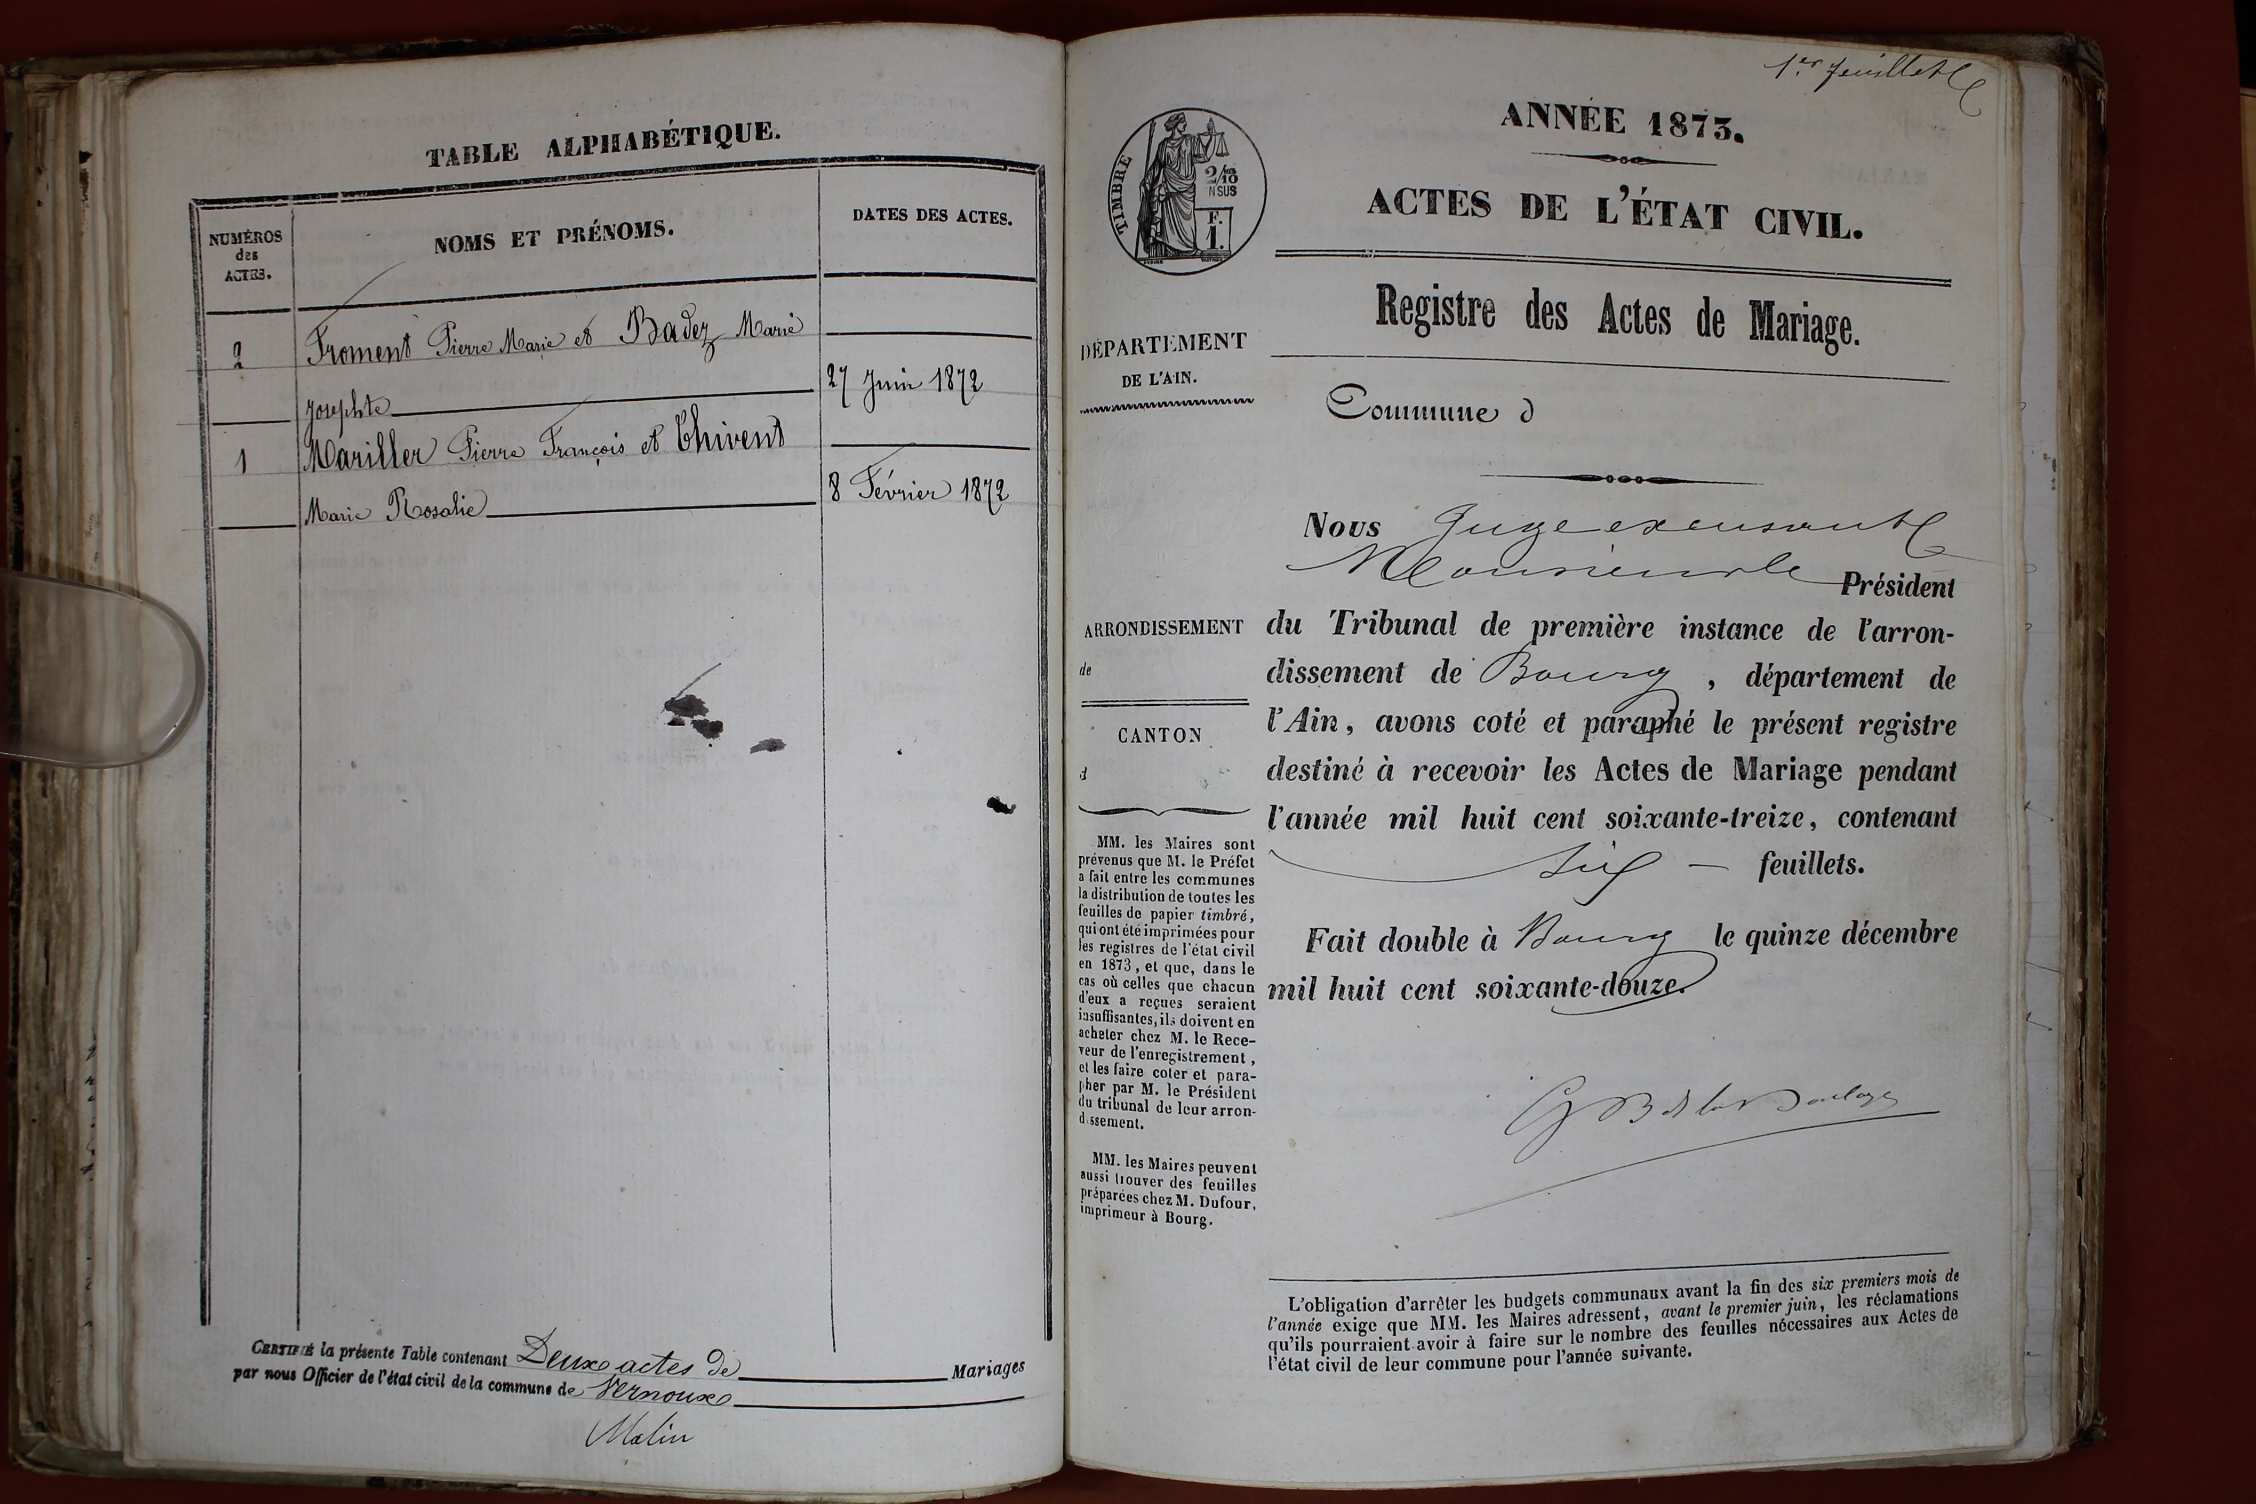 TABLE ALPHABÉTIQUE.
NUMÉROS
des
ACTES.
NOMS ET PRÉNOMS.
DATES DES ACTES.
2 Froment Pierre Marie et Badez Marie
Josephte 27 Juin 1872
1 Mariller Pierre François et Thivent
Marie Rosalie 8 Février 1872
CERTIFIÉ la présente Table contenant Deux actes de Mariages
par nous Officier de l'état civil de la commune de Vernoux
1er feuillet
TIMBRE
2/10
N SUS
F.
1.
DÉPARTEMENT
DE L'AIN.
ARRONDISSEMENT
de
CANTON
d
MM. les Maires sont
prévenus que M. le Préfet
a fait entre les communes
la distribution de toutes les
feuilles de papier timbré,
qui ont été imprimées pour
les registres de l'état civil
en 1873, et que, dans le
cas où celles que chacun
d'eux a reçues seraient
insuffisantes, ils doivent en
acheter chez M. le Rece-
veur de l'enregistrement,
et les faire coter et para-
pher par M. le Président
du tribunal de leur arron-
dissement.
MM. les Maires peuvent
aussi trouver des feuilles
préparées chez M. Dufour,
imprimeur à Bourg.
ANNÉE 1873.
ACTES DE L'ÉTAT CIVIL.
Registre des Actes de Mariage.
Commune d
Nous Juge
Monsieur le Président
du Tribunal de première instance de l'arron-
dissement de Bourg, département de
l'Ain, avons coté et paraphé le présent registre
destiné à recevoir les Actes de Mariage pendant
l'année mil huit cent soixante-treize, contenant
six feuillets.
Fait double à Bourg le quinze décembre
mil huit cent soixante-douze.
L'obligation d'arrêter les budgets communaux avant la fin des six premiers mois de
l'année exige que MM. les Maires adressent, avant le premier juin, les réclamations
qu'ils pourraient avoir à faire sur le nombre des feuilles nécessaires aux Actes de
l'état civil de leur commune pour l'année suivante.